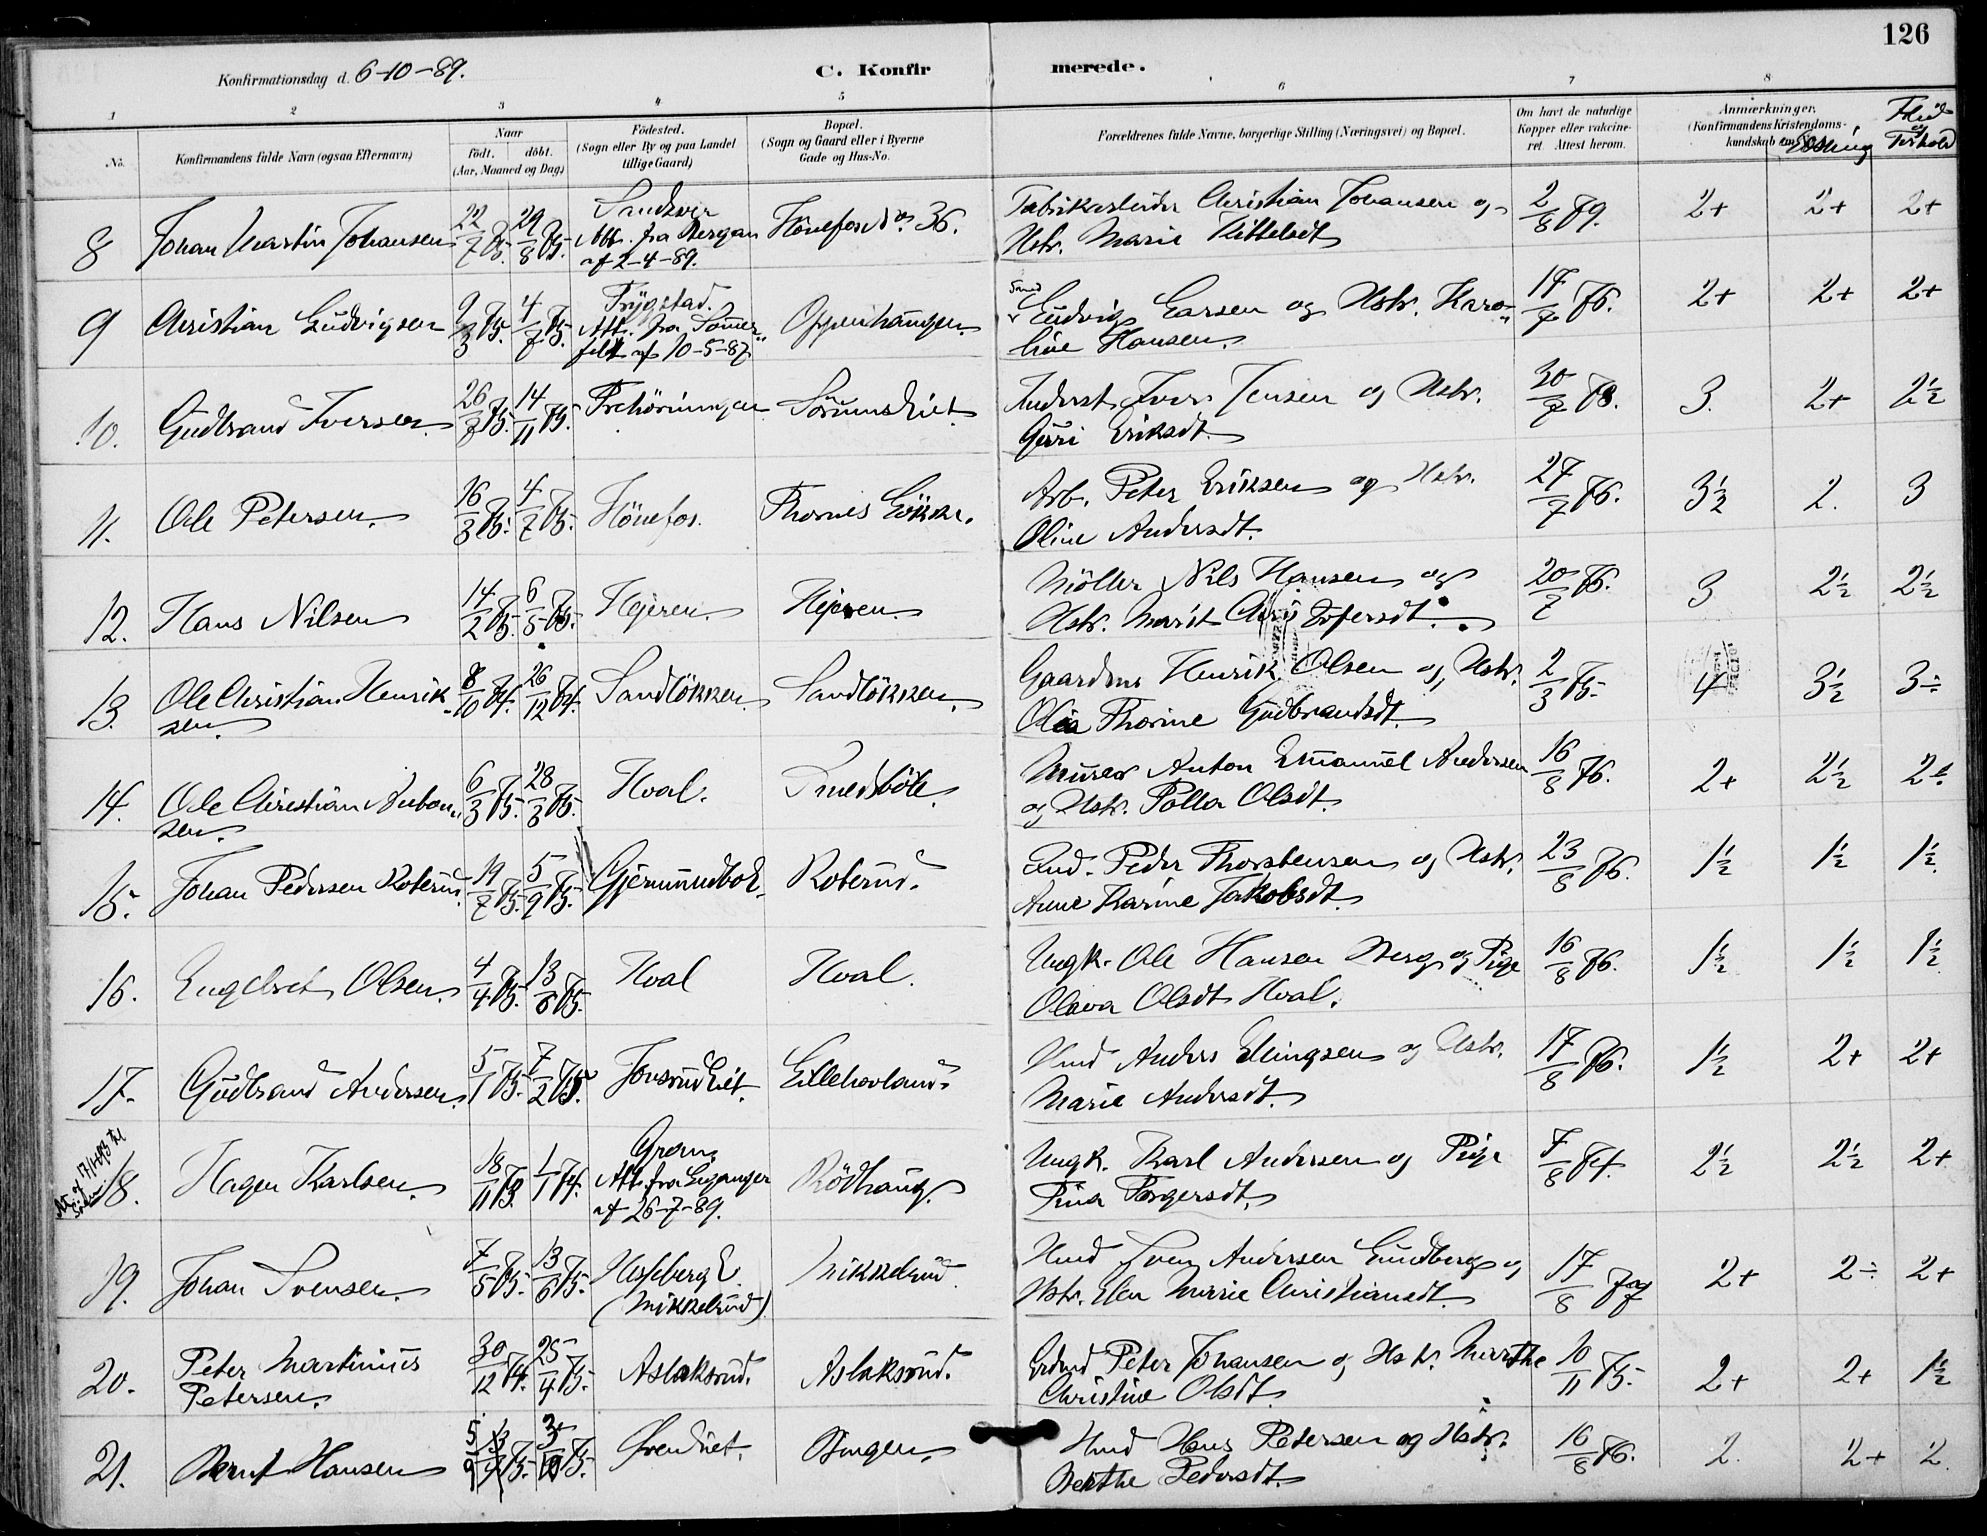 126
Konfirmationsdag d. 6-10-89.
C. Konfirmerede.
1 2 3 4 5 6 7 8
No.
Konfirmandens fulde Navn (ogsaa Efternavn)
Naar
født. døbt.
(Aar, Maaned og Dag)
Fødested.
(Sogn eller By og paa Landet
tillige Gaard)
Bopæl.
(Sogn og Gaard eller i Byerne
Gade og Hus-No.
Forældrenes fulde Navne, borgerlige Stilling (Næringsvei) og Bopæl.
Om havt de naturlige
Kopper eller vakcine-
ret. Attest herom.
Anmærkninger.
(Konfirmandens Kristendoms-
kundskab
Flid
og
Forhold
8 Johan Martin Johansen 22/7 75. 29/8 75. Sandsvær Att. fra Bergan af 2-4-89. Hönefos No. 36. Fabrikarbeider Christian Johansen og Hstr. Marie Kittelsdt 2/8 89. 2+ 2+ 2+
9 Christian Ludvigsen 9/3 75. 4/7 75. Trygstad. Att. fra Sommerfelt af 10-5-87 Oppenhaugen. Smed Ludvig Larsen og Hstr. Karoline Hansen. 17/7 76. 2+ 2+ 2+
10. Gudbrand Iversen 26/7 75. 14/11 75. Iver Jensen og Hstr. Guri Eriksdt. 30/7 78. 3. 2+ 2½
11. Ole Petersen. 16/3 75. 4/7 75. Hönefos. Thornes Lökke. Arb. Peter Eriksen og Hstr. Oline Andersdt. 27/7 76. 3½ 2. 3
12. Hans Nilsen 14/2 75. 6/5 75. Hejeren. Hejeren. Möller Nils Hansen og Hstr. Marit 20/7 76. 3 2½ 2½
13. Ole Christian Henriksen. 8/10 74. 26/12 74. Sandlökken. Sandlökken. Gaardbr. Henrik Olsen og Hstr. Olea Thorine Gudbrandsdt. 2/3 75. 4 3½ 3÷
14. Ole Christian Antonsen. 6/3 75. 28/3 75. Hval. Smedsböle. Murer Anton Emanuel Andersen og Hstr. Olsdt. 16/8 76. 2+ 2½
15. Johan Pedersen Roterud. 19/7 75. 5/9 75. Gjermundbo E. Roterud. Peder Thorstensen og Hstr. Anne Karine Jakobsdt. 23/8 76. 1½ 1½ 1½
16. Engebret Olsen. 4/4 75. 13/6 75. Hval Hval. Ungk. Ole Hansen Berg og Pige Olava Olsdt Hval. 16/8 76. 1½ 1½ 1½
17. Gudbrand Andersen. 5/1 75. 7/2 75. Jonsrud Eiet. Lillehovland. Hmd Anders Ellingsen og Hstr. Marie Andersdt. 17/8 76. 1½ 2+ 2+
18. Hagen Karlsen. 18/11 73. 1/1 74. Gran Att. fra af 26-7-89. Rödhaug. Ungk. Karl Andersen og Pige Torgersdt. 7/8 74. 2½ 2½ 2+
19. Johan Svensen. 7/5 75. 13/6 75. Hesleberg E. (Mikkelrud) Mikkelrud. Hmd Sven Andersen Lundberg og Hstr. Elen Marie Christiansdt. 17/8 77 2+ 2÷ 2+
20. Peter Martinius Petersen. 30/12 74. 25/4 75. Aslaksrud. Aslaksrud. Peter Johansen og Hstr. Marthe Christine Olsdt. 10/11 75. 2+ 2+ 1½
21. Bernt Hansen 5/9 75. Bingen. Hmd Hans Pedersen og Hstr. Berthe Pedersdt. 16/8 76. 2. 2+ 2.